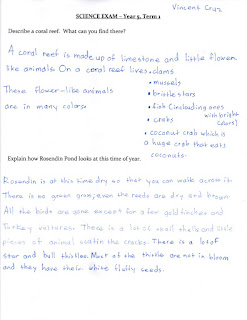 Vincent Cruz
SCIENCE EXAM – Year 5, Term 1
Describe a coral reef. What can you find there?
A coral reef is made up of limestone and little flower
like animals. On a coral reef lives • clams
• mussels
These flower-like animals
• brittle stars
are in many colors.
• fish (including ones
with bright
colors)
• crabs
• coconut crab which is
a huge crab that eats
coconuts.
Explain how Rosendin Pond looks at this time of year.
Rosendin is at this time dry so that you can walk across it.
There is no green grass, even the reeds are dry and brown.
All the birds are gone except for a few goldfinches and
Turkey vultures. There is a lot of snail shells and little
pieces of animal scat in the cracks. There is a lot of
star and bull thistles. Most of the thistles are not in bloom
and they have their white fluffy seeds.